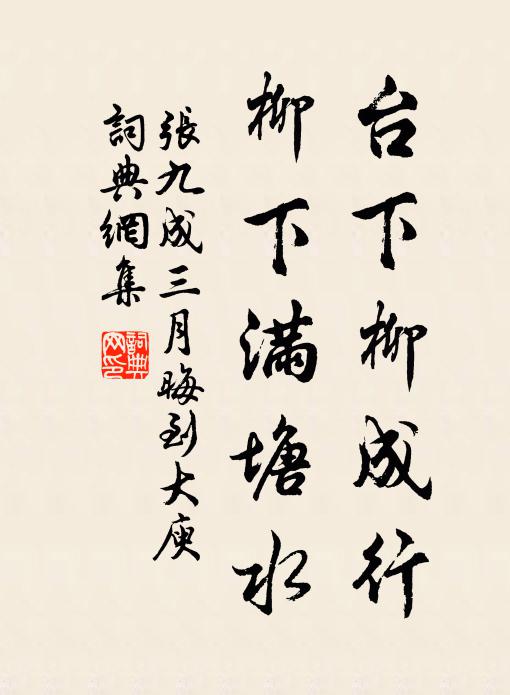 台下柳成行
柳下滿塘水
張九成三月晦到大庾
詞典網集
詞典網印